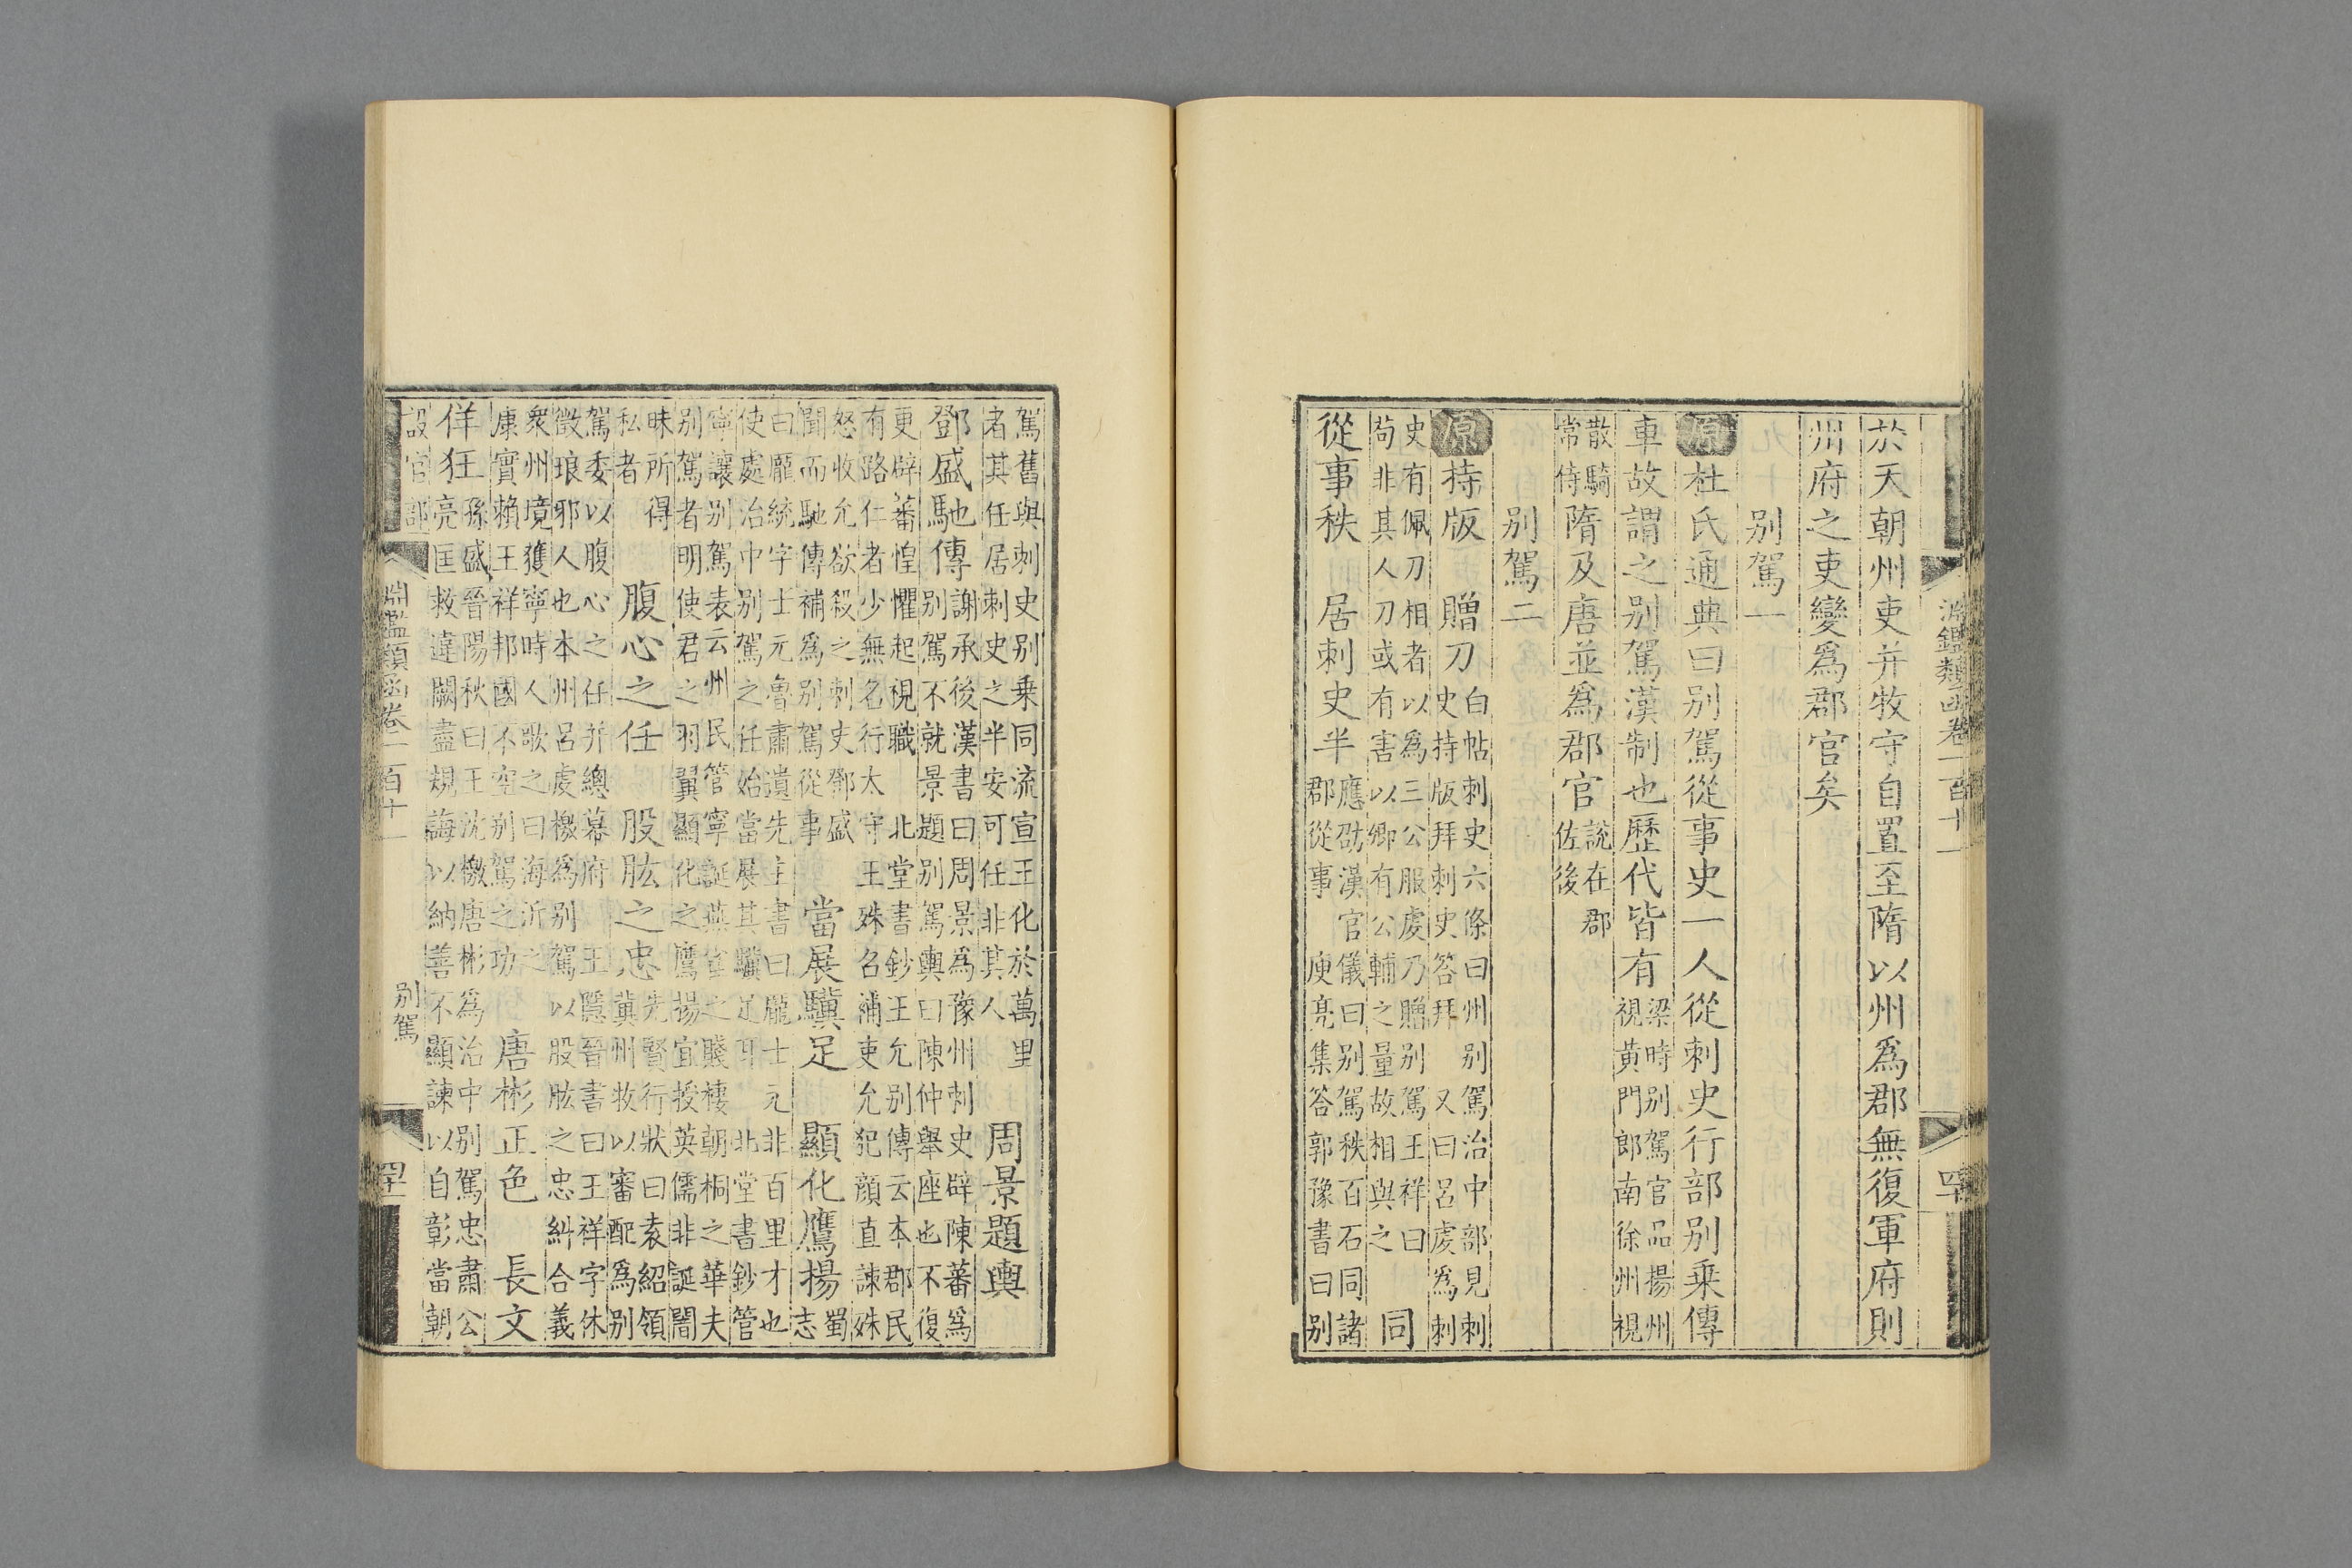 淵鑑類函卷一百十一 四十
於天朝州吏并牧守自置至隋以州爲郡無復軍府則
州府之吏變爲郡官矣
别駕一
原杜氏通典曰别駕從事史一人從刺史行部别乗傳
車故謂之别駕漢制也歷代皆有梁時别駕官品揚州視黄門郎南徐州視
散騎常侍隋及唐並爲郡官說在郡佐後
别駕二
原持版 贈刀白帖刺史六條曰州别駕治中部見刺史持版拜刺史答拜 又曰呂虔爲刺
史有佩刀相者以爲三公服虔乃贈别駕王祥曰苟非其人刀或有害以卿有公輔之量故相與之 同
從事秩 居刺史半應劭漢官儀曰别駕秩百石同諸郡從事 庾亮集答郭豫書曰别
駕舊與刺史别乗同流宣王化於萬里者其任居刺史之半安可任非其人 周景題輿
鄧盛馳傳謝承後漢書曰周景爲豫州刺史辟陳蕃爲别駕不就景題别駕輿曰陳仲舉座也不復
更辟蕃惶懼起視職 北堂書鈔王允别傳云本郡民有路仁者少無名行太守王殊名補吏允犯顔直諫殊
怒收允欲殺之刺史鄧盛聞而馳傳補爲别駕從事 當展驥足 顯化鷹揚蜀志
曰龎統字士元魯肅遺先主書曰龎士元非百里才也使處治中别駕之任始當展其驥足耳 北堂書鈔管
寧讓别駕表云州民管寧誕燕雀之賤棲朝桐之華夫别駕者明使君之羽翼顯化之鷹揚宜授英儒非誕闇
昧所得私者 腹心之任 股肱之忠先賢行狀曰袁紹領冀州牧以審配爲别
駕委以腹心之任并總幕府 王隱晉書曰王祥字休徵琅邪人也本州呂虔檄爲别駕以股肱之忠糾合義
衆州境獲寧時人歌之曰海沂之康實賴王祥邦國不空别駕之功 唐彬正色 長文
佯狂孫盛晉陽秋曰王沈檄唐彬爲治中别駕忠肅公亮匡救違闕盡規誨以納善不顯諫以自彰當朝
設官部 淵鑑類函卷一百十一 别駕 四十一